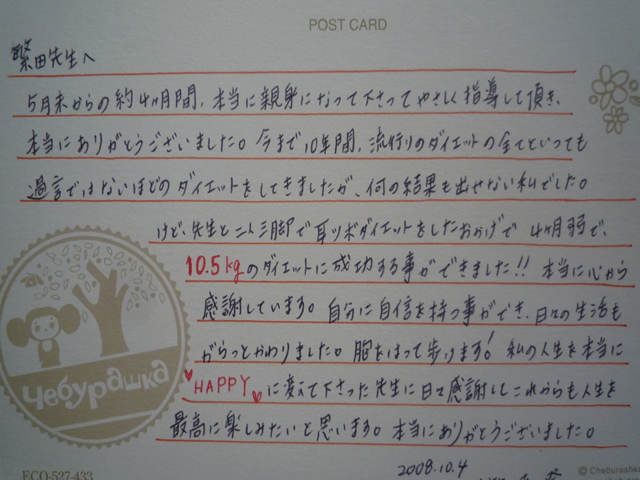 POST CARD
繁田先生へ
5月末からの約4ヶ月間、本当に親身になって下さってやさしく指導して頂き、
本当にありがとうございました。今まで10年間、流行りのダイエットの全てといっても
過言ではないほどのダイエットをしてきましたが、何の結果も出せない私でした。
けど、先生と二人三脚で耳ツボダイエットをしたおかげで 4ヶ月弱で、
10.5kgのダイエットに成功する事ができました!! 本当に心から
感謝しています。自分に自信を持つ事ができ、日々の生活も
がらっとかわりました。胸をはって歩けます! 私の人生を本当に
HAPPYに変えて下さった先生に日々感謝してこれからも人生を
最高に楽しみたいと思います。本当にありがとうございました。
2008.10.4
Чебурашка
ECO-527-433
© Cheburashka